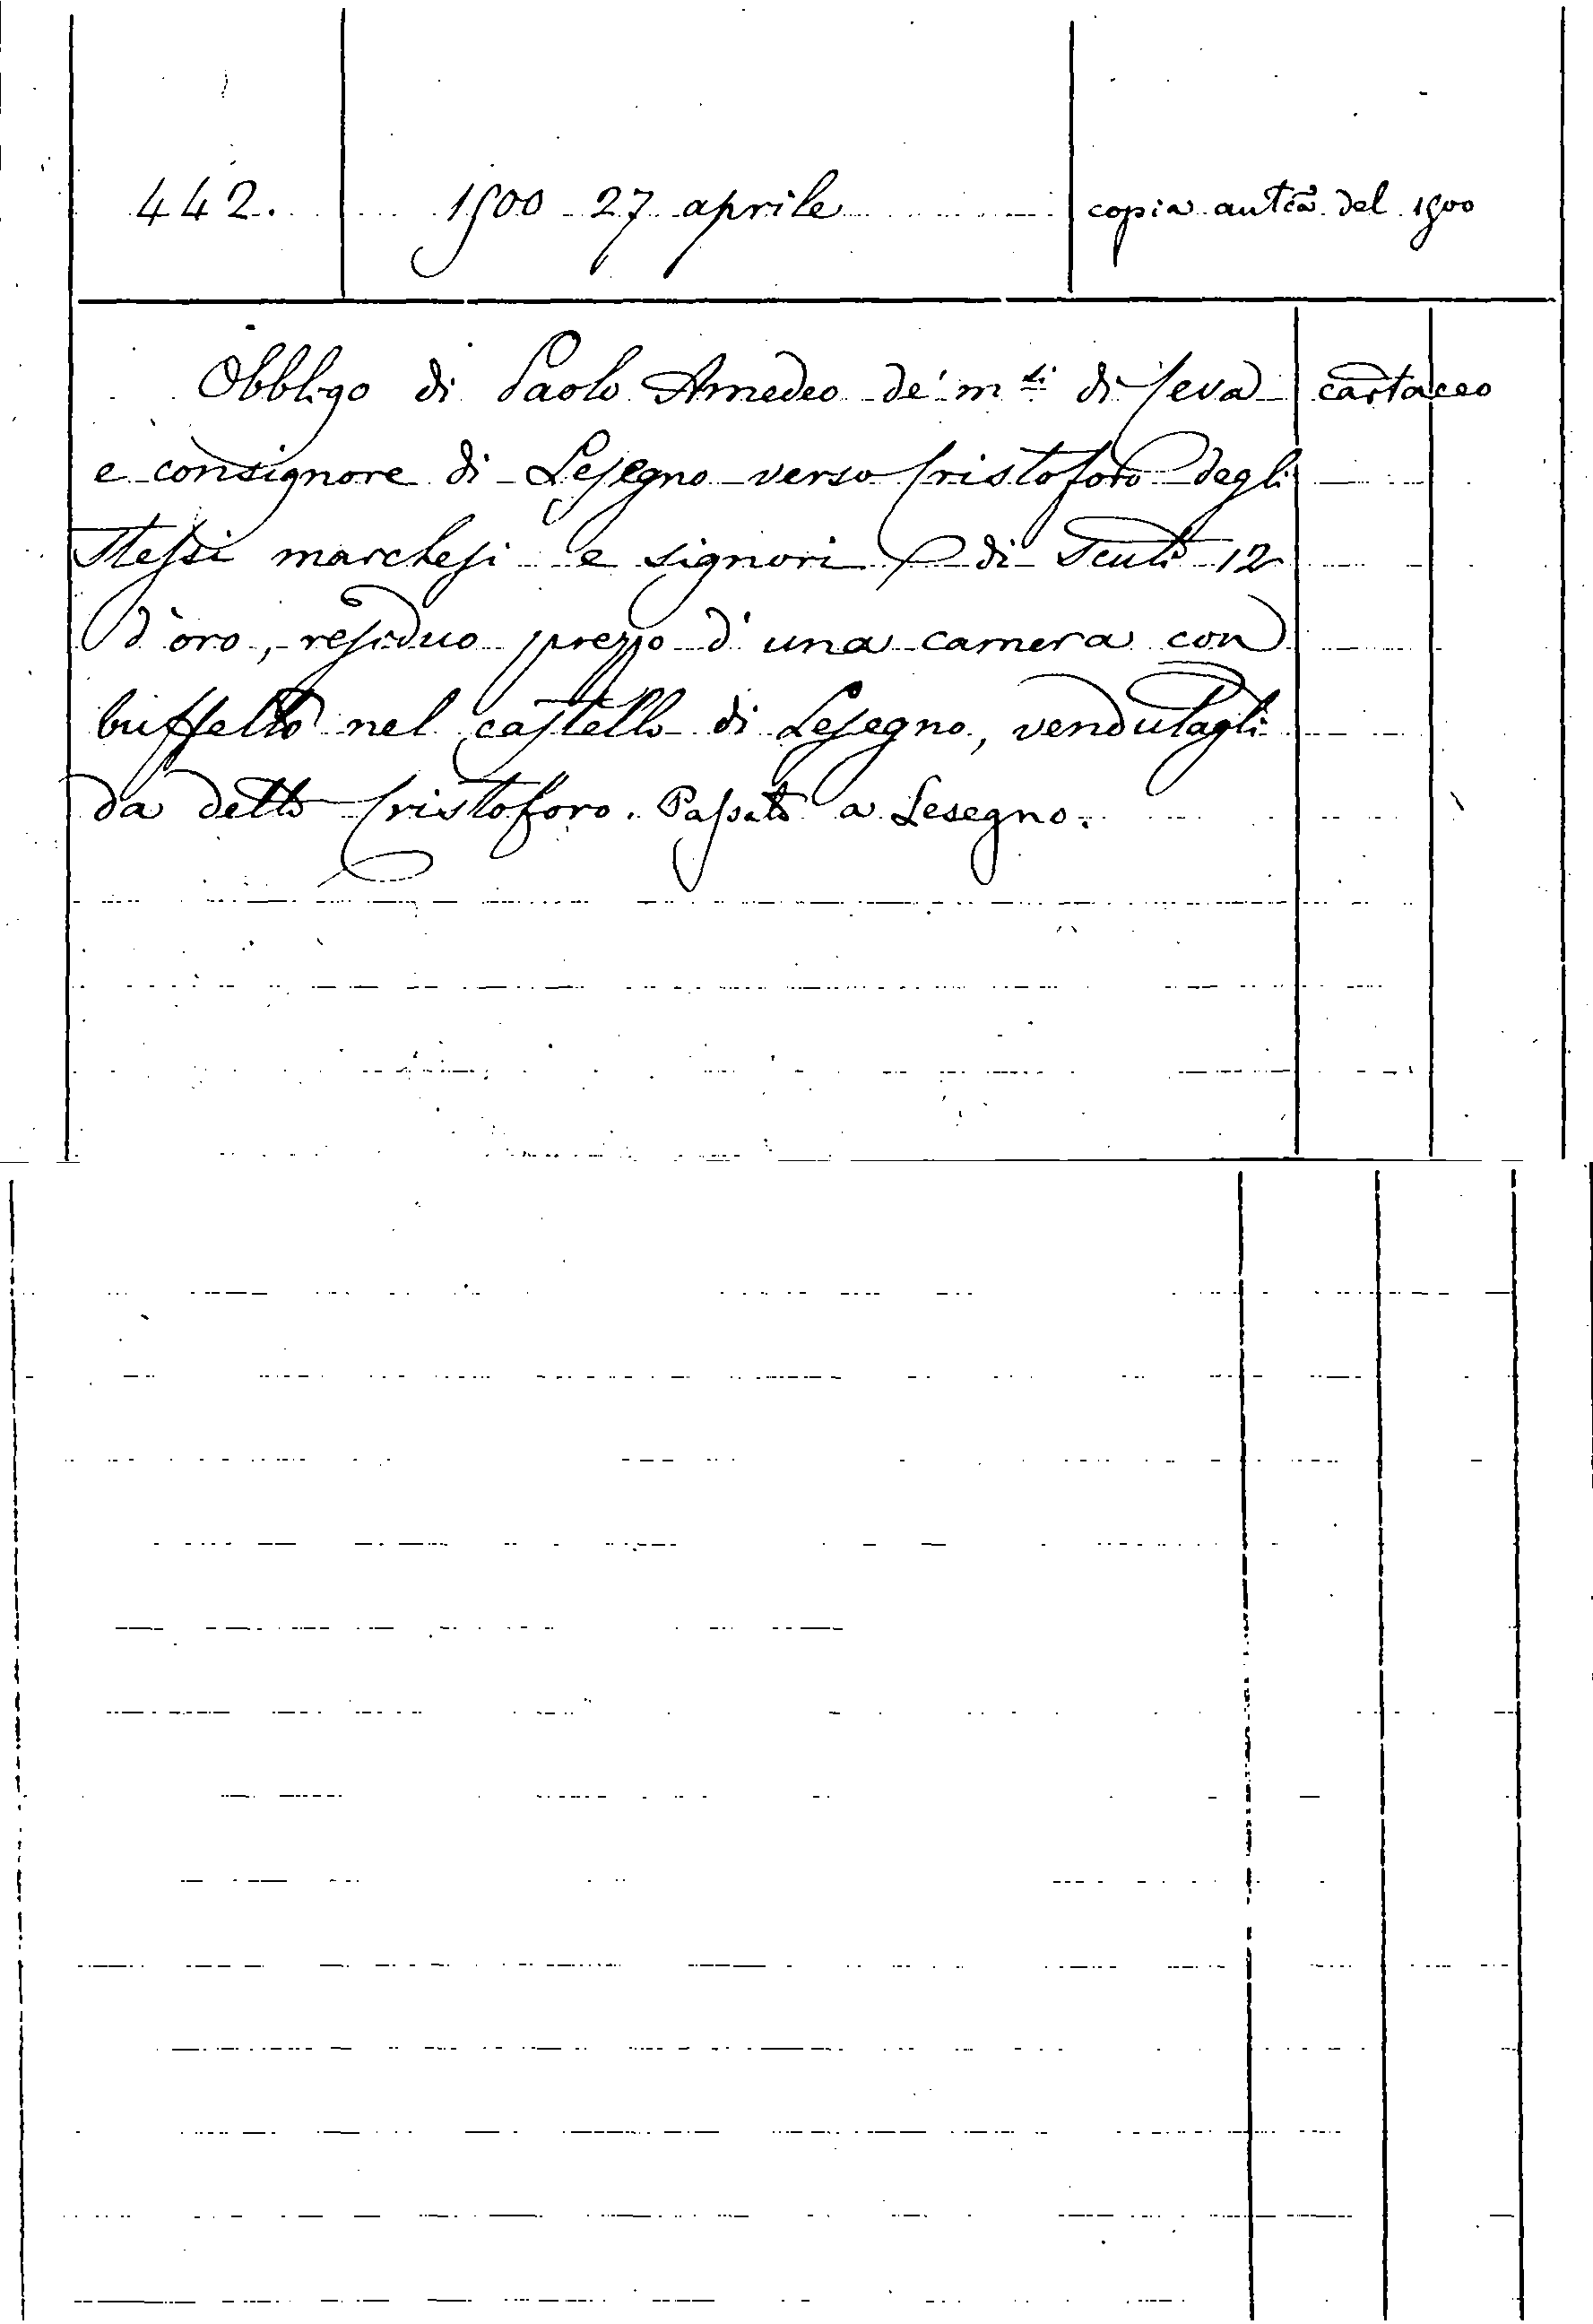 442. 1500 27 aprile copia autca del 1500
Obbligo di Paolo Amedeo de' m.si di Ceva cartaceo
e consignore di Lesegno verso Cristoforo degli
stessi marchesi e signori di Scuti 12
d'oro, residuo prezzo d'una camera con
buffetto nel castello di Lesegno, vendutagli
da detto Cristoforo. Passato a Lesegno.